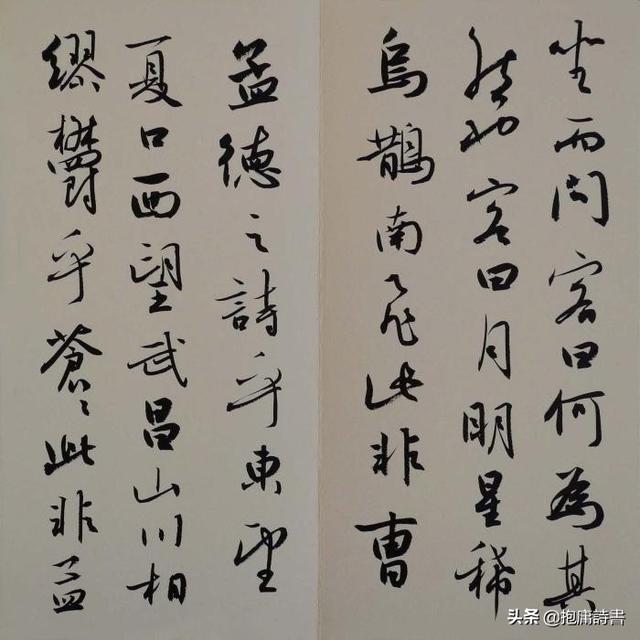 坐而問客曰何為其
然也客曰月明星稀
烏鵲南飛此非曹
孟德之詩乎東望
夏口西望武昌山川相
繆鬱乎蒼々此非孟
头条 @抱庸詩書